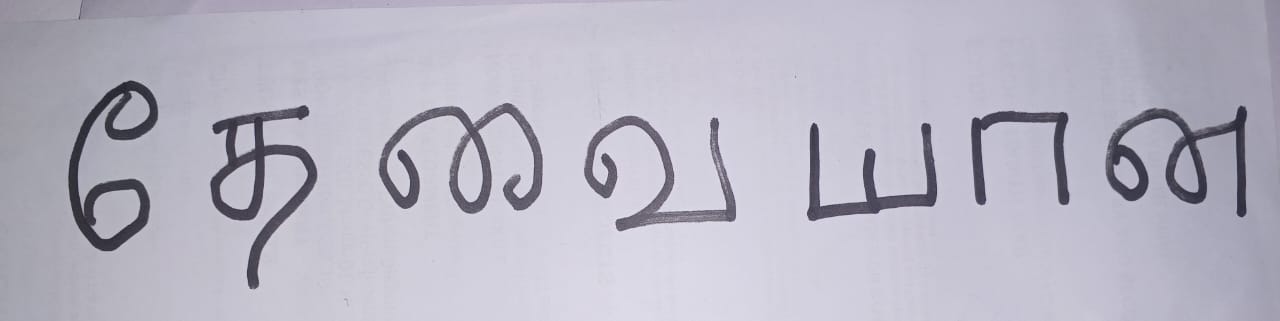 தேவையான